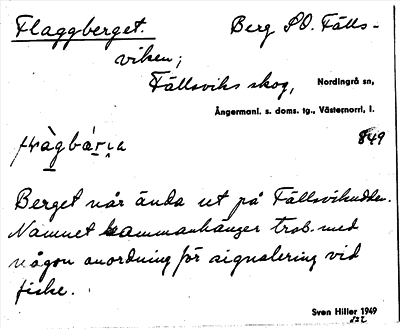 Flaggberget. Berg SO. Fälls-
viken;
Fällsviks skog, Nordingrå sn,
Ångermanl. s. doms. tg., Västernorrl. l.
849
Berget når ända ut på Fällsviksudden.
Namnet sammanhänger trol. med
någon anordning för signalering vid
fiske.
Sven Hiller 1949